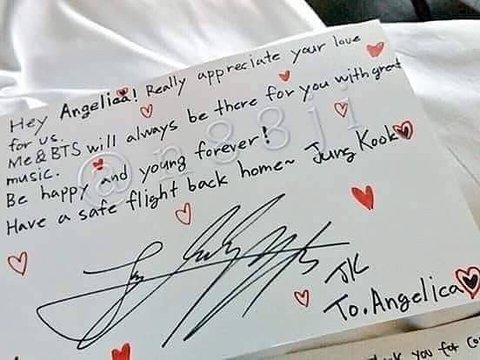 Hey Angelica! Really appreciate your love
for us.
Me & BTS will always be there for you with great
music.
Be happy and young forever!
Have a safe flight back home~ Jung Kook
JK
To. Angelica
@n88ji
you for